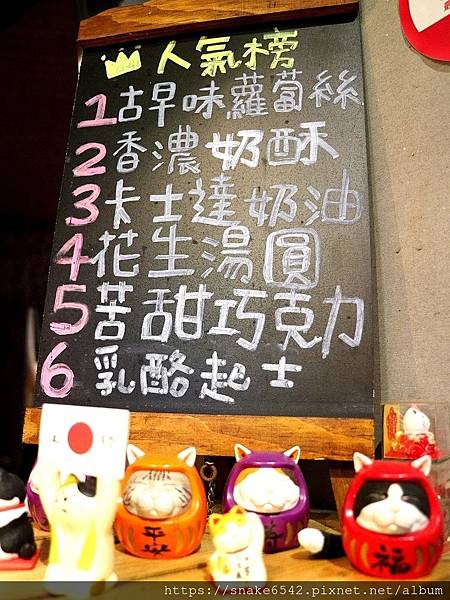 人氣榜
1古早味蘿蔔絲
2香濃奶酥
3卡士達奶油
4花生湯圓
5苦甜巧克力
6乳酪起士
平安
福
https://snake6542.pixnet.net/album